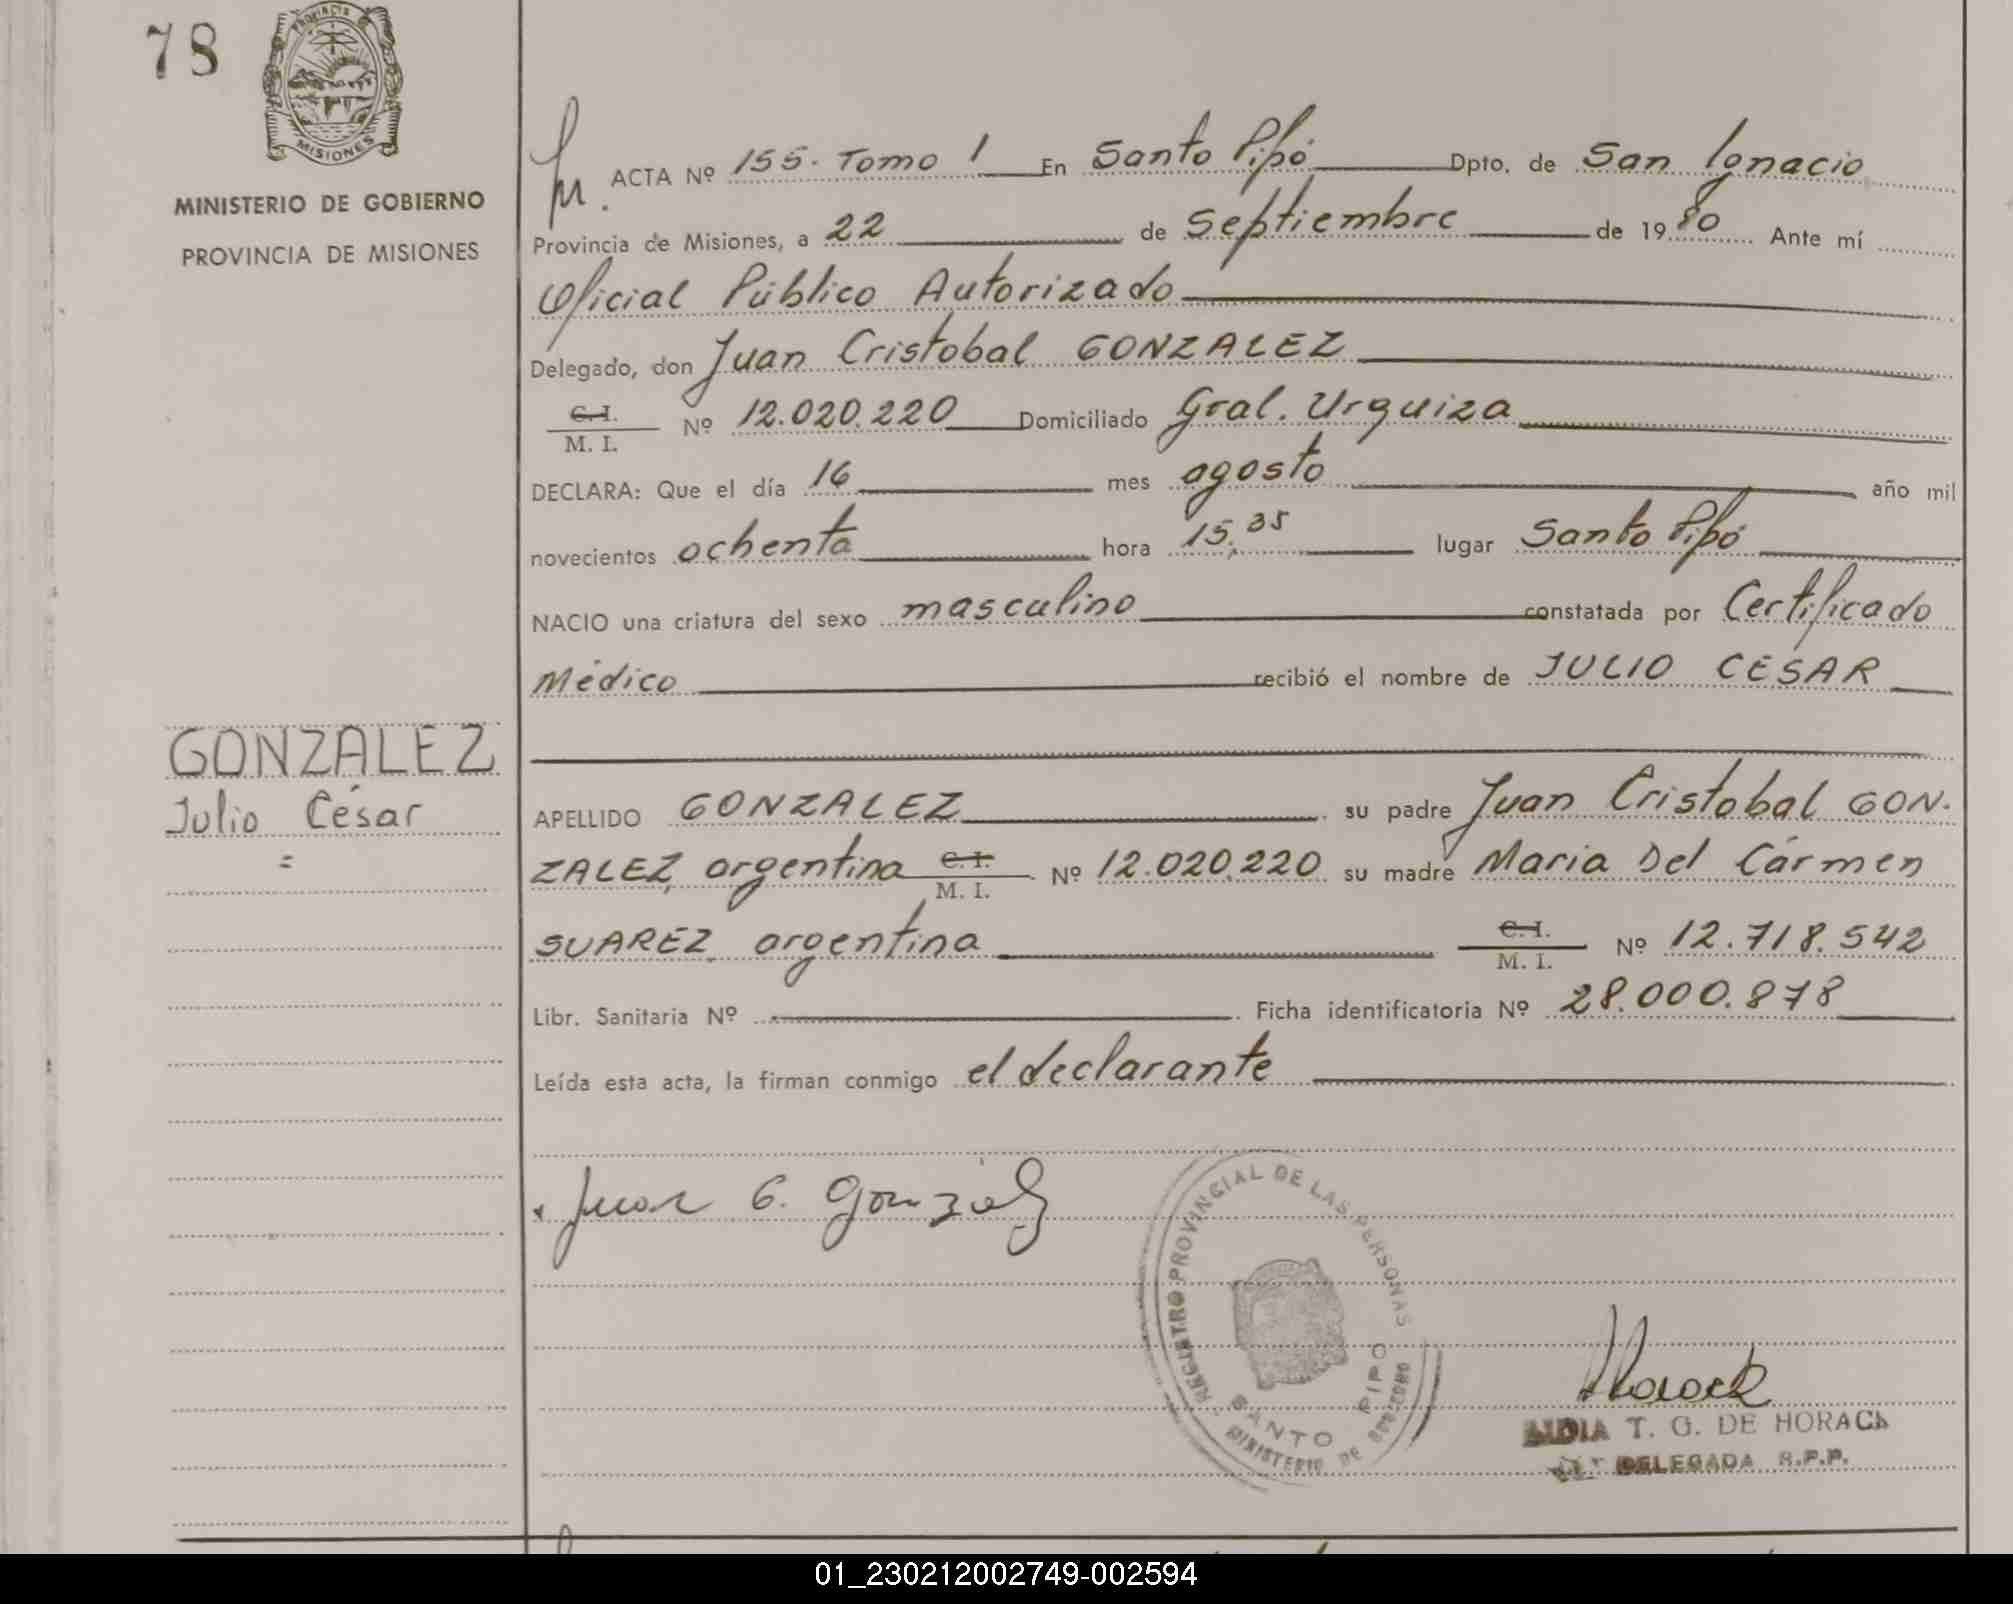 78
PROVINCIA
MISIONES
MINISTERIO DE GOBIERNO
PROVINCIA DE MISIONES
GONZALEZ
Julio César
=
ACTA Nº 155. Tomo 1 En Santo Pipó Dpto. de San Ignacio
Provincia de Misiones, a 22 de Septiembre de 1980 Ante mí
Oficial Público Autorizado
Delegado, don Juan Cristobal GONZALEZ
C. I.
M. I. Nº 12.020.220 Domiciliado Gral. Urquiza
DECLARA: Que el día 16 mes agosto año mil
novecientos ochenta hora 15,35 lugar Santo Pipó
NACIO una criatura del sexo masculino constatada por Certificado
Médico recibió el nombre de JULIO CESAR
APELLIDO GONZALEZ su padre Juan Cristobal GON.
ZALEZ, argentina C. I. M. I. Nº 12.020.220 su madre Maria Del Cármen
SUAREZ argentina C. I. M. I. Nº 12.718.542
Libr. Sanitaria Nº Ficha identificatoria Nº 28.000.878
Leída esta acta, la firman conmigo el declarante
Juan C. González
REGISTRO PROVINCIAL DE LAS PERSONAS
SANTO PIPO
MINISTERIO DE GOBIERNO
LIDIA T. G. DE HORACK
DELEGADA R.P.P.
01_230212002749-002594